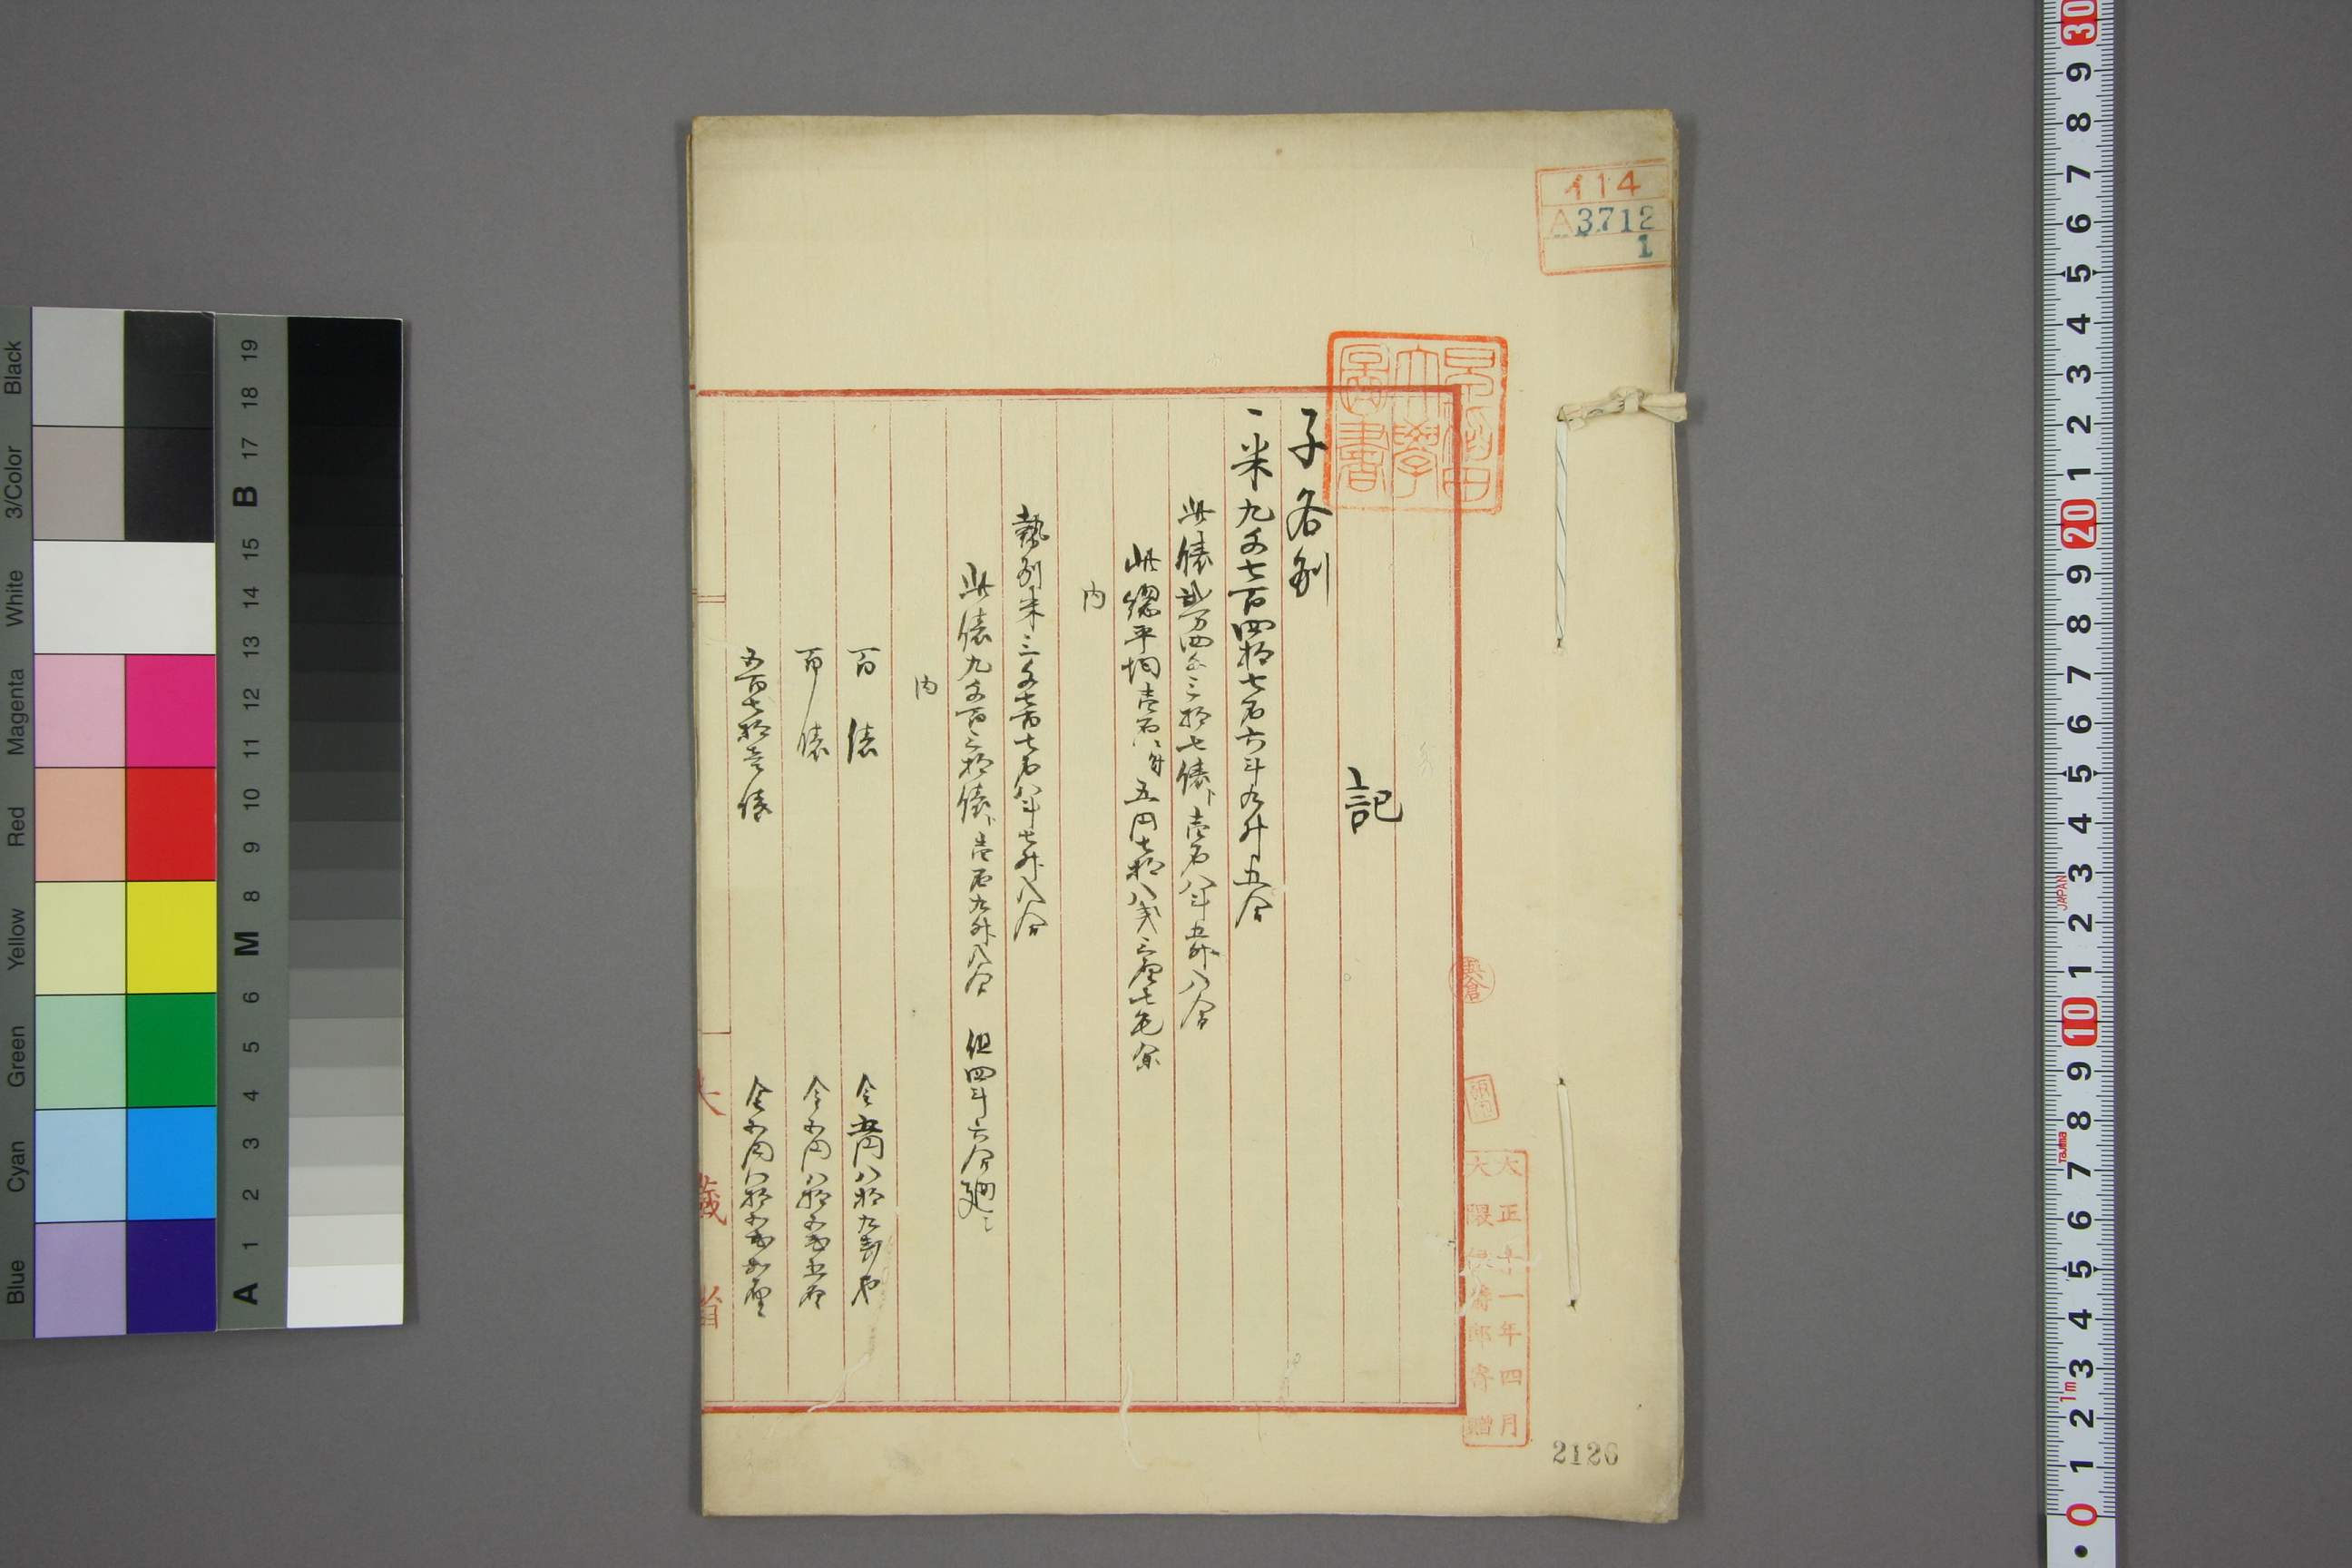 記
子各県
一米九千七百四拾七石六斗九升五合
此俵弐万四千三拾七俵ト壱石八斗五升八合
此総平均壱石ニ付五円七拾八銭三厘七毛余
内
勢列米三千七百七石八斗七升八合
此俵九千百三拾俵ト壱石九升八合 但四斗六合廻ニ
内
百俵 金五円八拾九銭也
百俵 金五円八拾五銭五厘
五百七拾壱俵 金五円八拾五銭五厘
大蔵省
早稲田大学図書
114
A3712
1
大正十一年四月
大隈侯爵邸寄贈
2126
Black
3/Color
White
Magenta
Red
Yellow
Green
Cyan
Blue
A 1 2 3 4 5 6 M 8 9 10 11 12 13 14 15 B 17 18 19
30 9 8 7 6 5 4 3 2 1 20 9 8 7 6 5 4 3 2 1 10 9 8 7 6 5 4 3 2 1 0
JAPAN
Tajima
1m